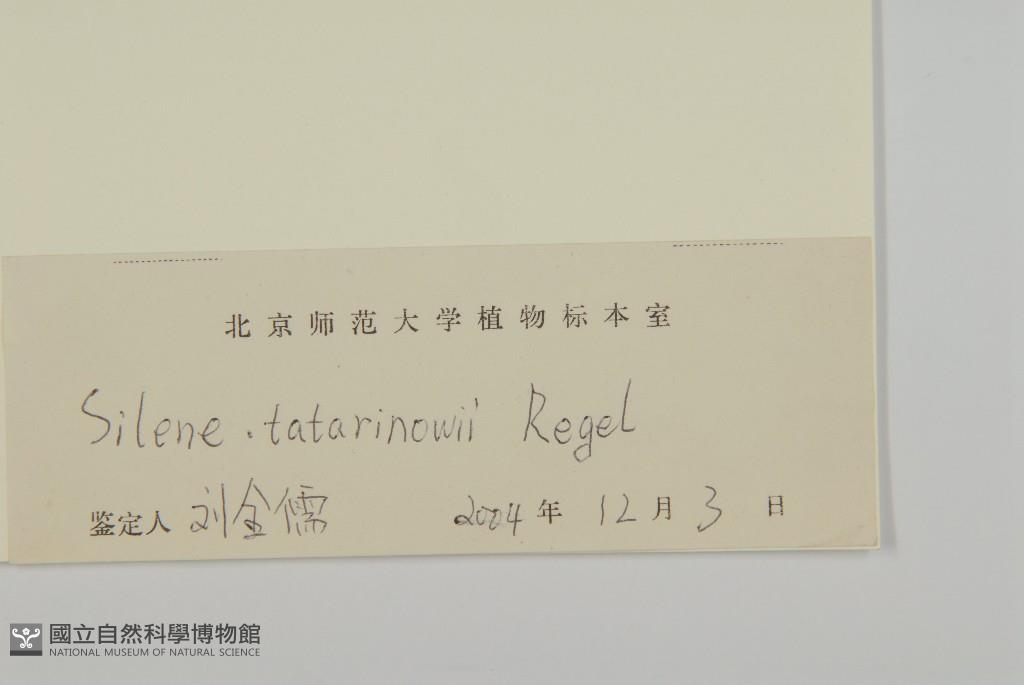 北京师范大学植物标本室
Silene. tatarinowii Regel
鉴定人 刘全儒 2004 年 12 月 3 日
國立自然科學博物館
NATIONAL MUSEUM OF NATURAL SCIENCE